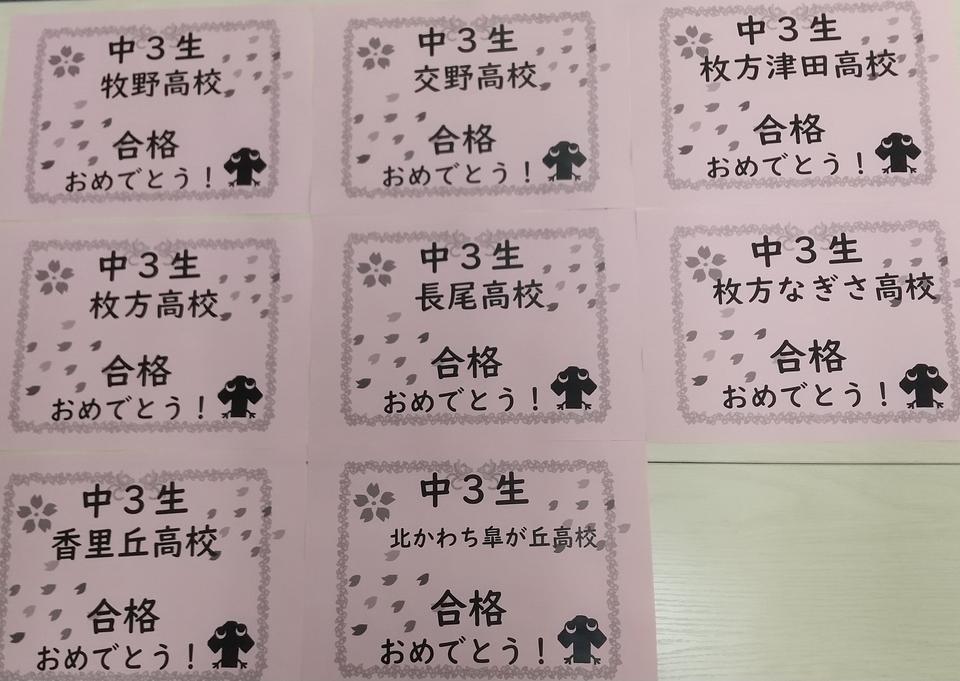 中3生
牧野高校
合格
おめでとう!
中3生
交野高校
合格
おめでとう!
中3生
枚方津田高校
合格
おめでとう!
中3生
枚方高校
合格
おめでとう!
中3生
長尾高校
合格
おめでとう!
中3生
枚方なぎさ高校
合格
おめでとう!
中3生
香里丘高校
合格
おめでとう!
中3生
北かわち皐が丘高校
合格
おめでとう!